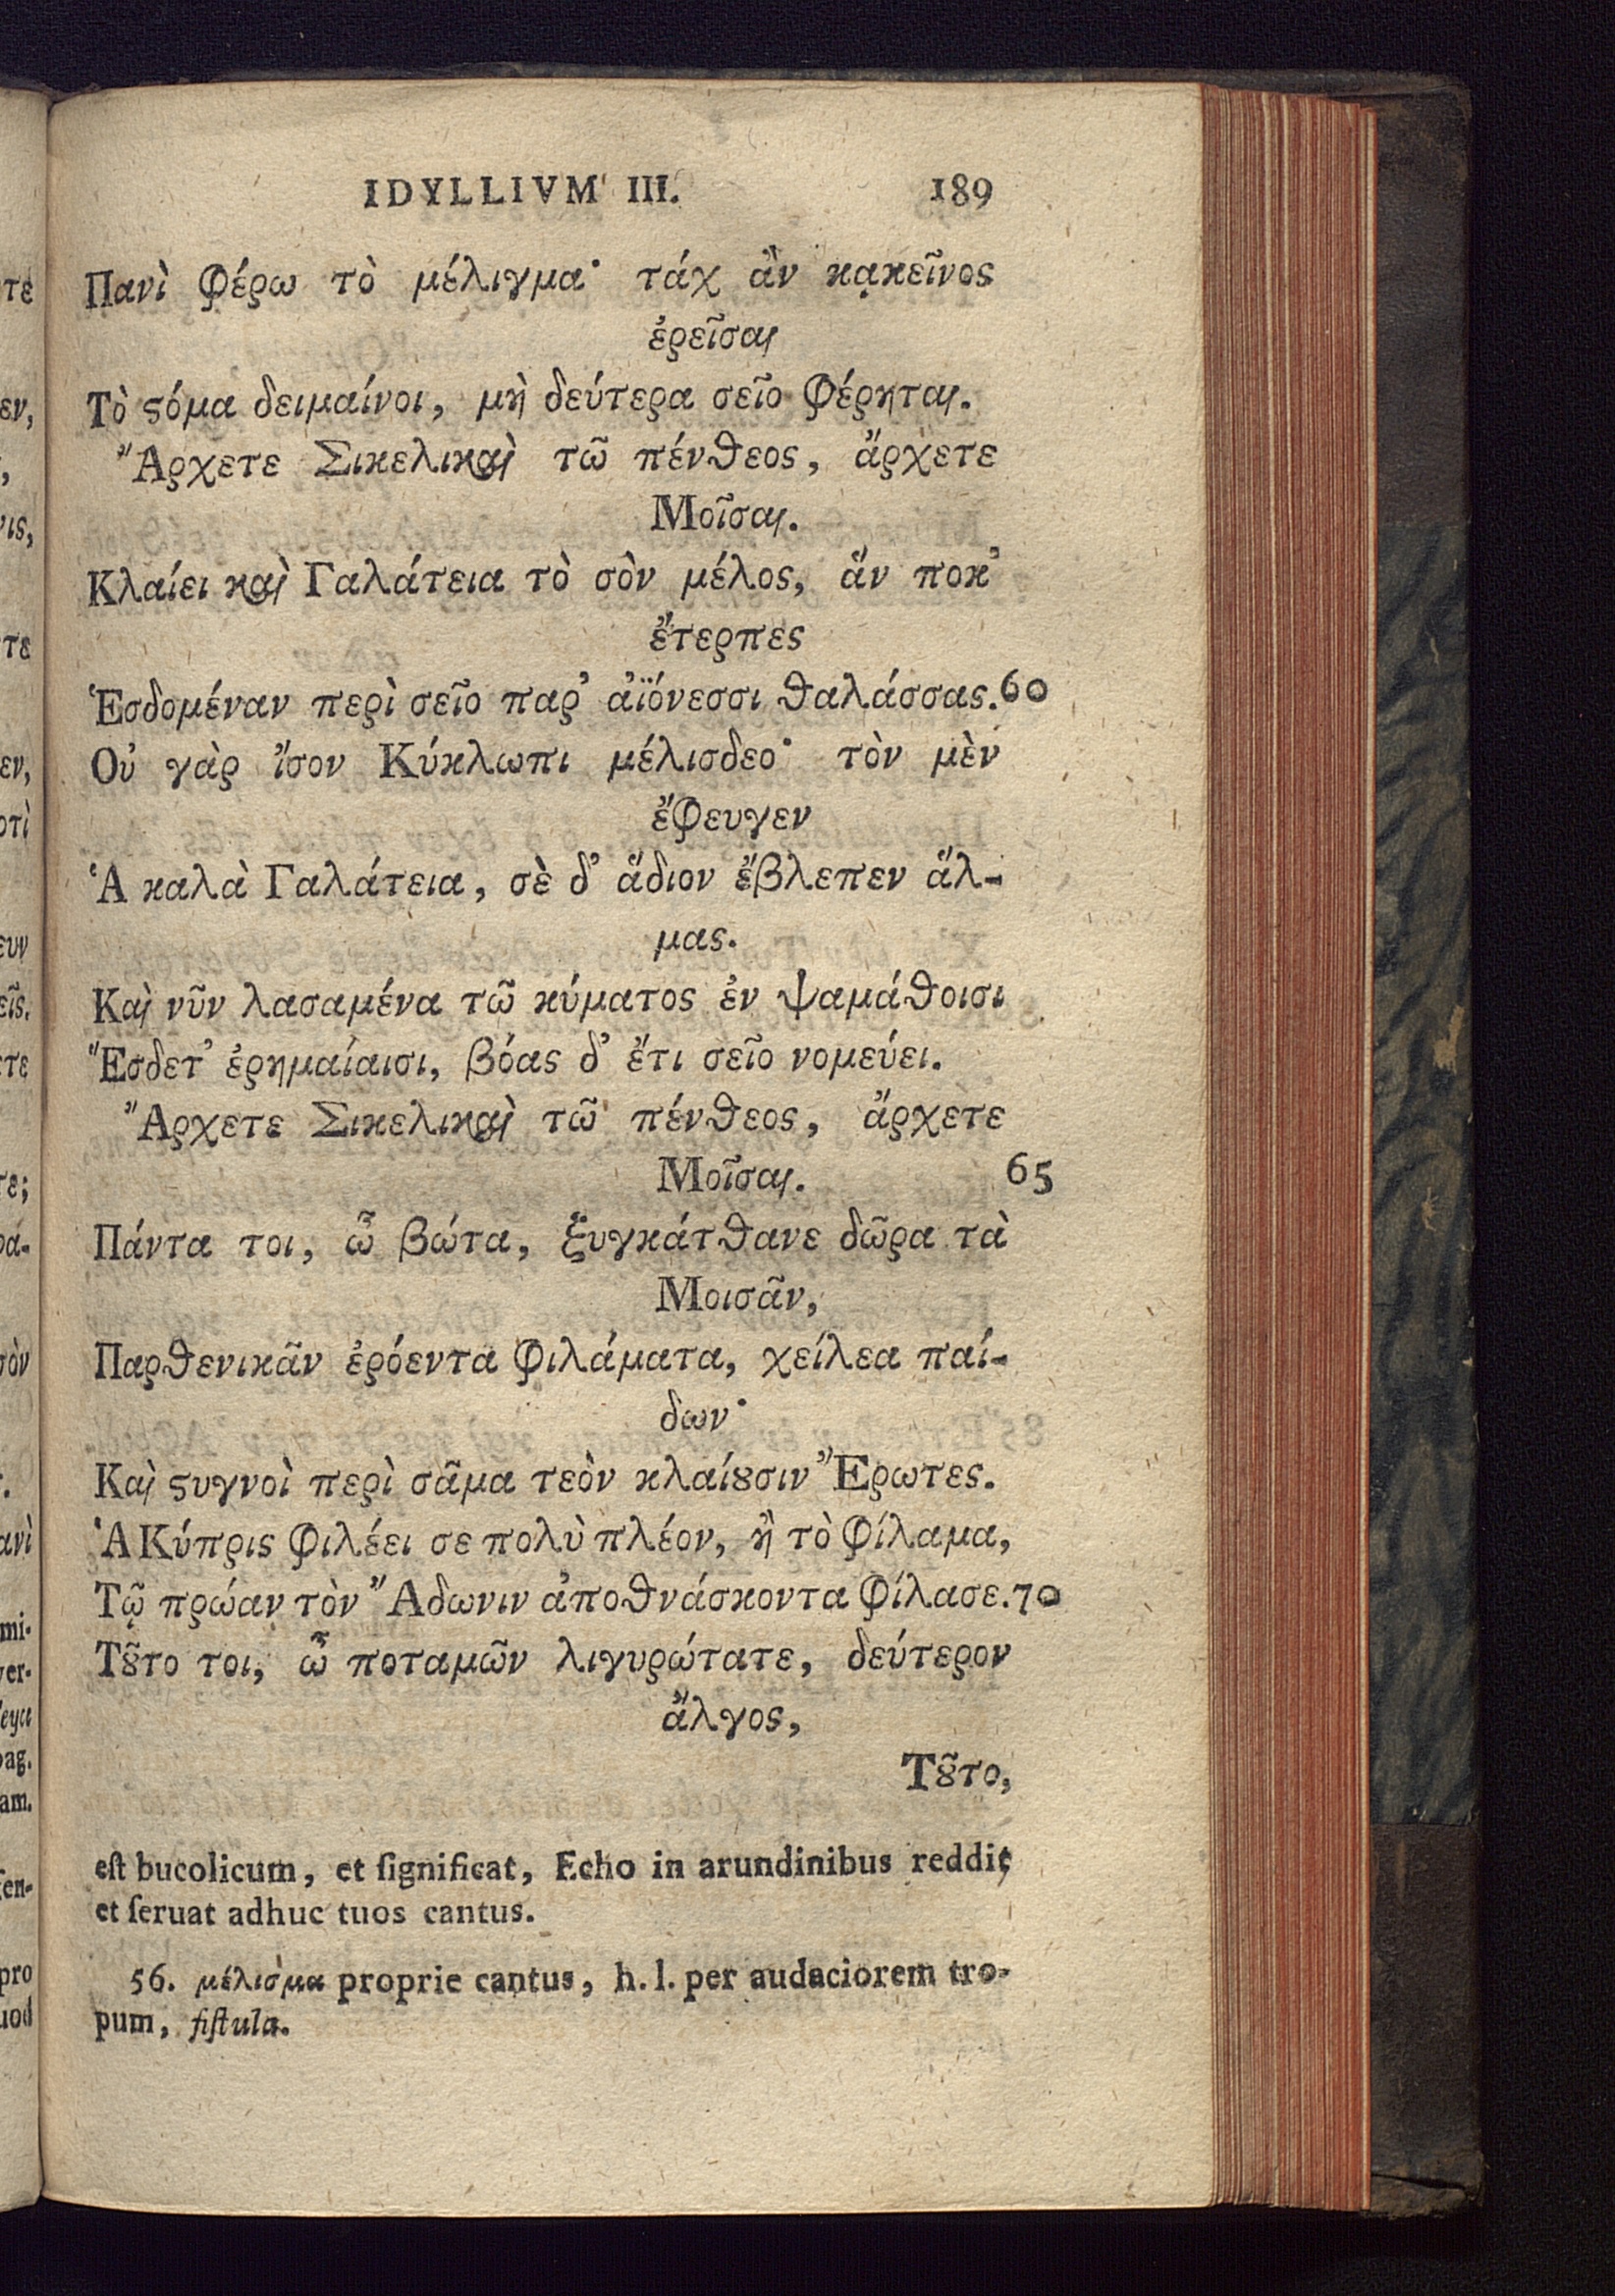 IDYLLIVM III. 189
Πανὶ φέρω τὸ μέλιγμα· τάχ ἂν κᾳκεῖνος
ἐρεῖσαι
Τὸ ϛόμα δειμαίνοι, μὴ δεύτερα σεῖο φέρηται.
Ἄρχετε Σικελικαὶ τῶ πένθεος, ἄρχετε
Μοῖσαι.
Κλαίει καὶ Γαλάτεια τὸ σὸν μέλος, ἅν ποκ’
ἔτερπες
Ἑσδομέναν περὶ σεῖο παρ’ ἀϊόνεσσι θαλάσσας. 60
Οὐ γὰρ ἴσον Κύκλωπι μέλισδεο· τὸν μὲν
ἔφευγεν
Ἁ καλὰ Γαλάτεια, σὲ δ’ ἅδιον ἔβλεπεν ἅλ-
μας.
Καὶ νῦν λασαμένα τῶ κύματος ἐν ψαμάθοισι
Ἕσδετ’ ἐρημαίαισι, βόας δ’ ἔτι σεῖο νομεύει.
Ἄρχετε Σικελικαὶ τῶ πένθεος, ἄρχετε
Μοῖσαι. 65
Πάντα τοι, ὦ βώτα, ξυγκάτθανε δῶρα τὰ
Μοισᾶν,
Παρθενικᾶν ἐρόεντα φιλάματα, χείλεα παί-
δων·
Καὶ ϛυγνοὶ περὶ σᾶμα τεὸν κλαίȣσιν Ἔρωτες.
Ἁ Κύπρις φιλέει σε πολὺ πλέον, ἢ τὸ φίλαμα,
Τῷ πρώαν τὸν Ἄδωνιν ἀποθνάσκοντα φίλασε. 70
Τȣ͂το τοι, ὦ ποταμῶν λιγυρώτατε, δεύτερον
ἄλγος,
Τȣ͂το,
eſt bucolicum, et ſignificat, Echo in arundinibus reddit
et ſeruat adhuc tuos cantus.
56. μέλισμα proprie cantus, h. l. per audaciorem tro-
pum, fiſtula.